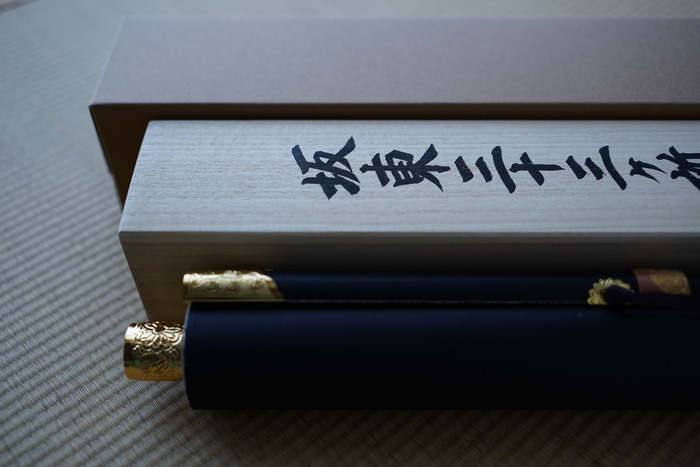 坂東三十三ヶ所